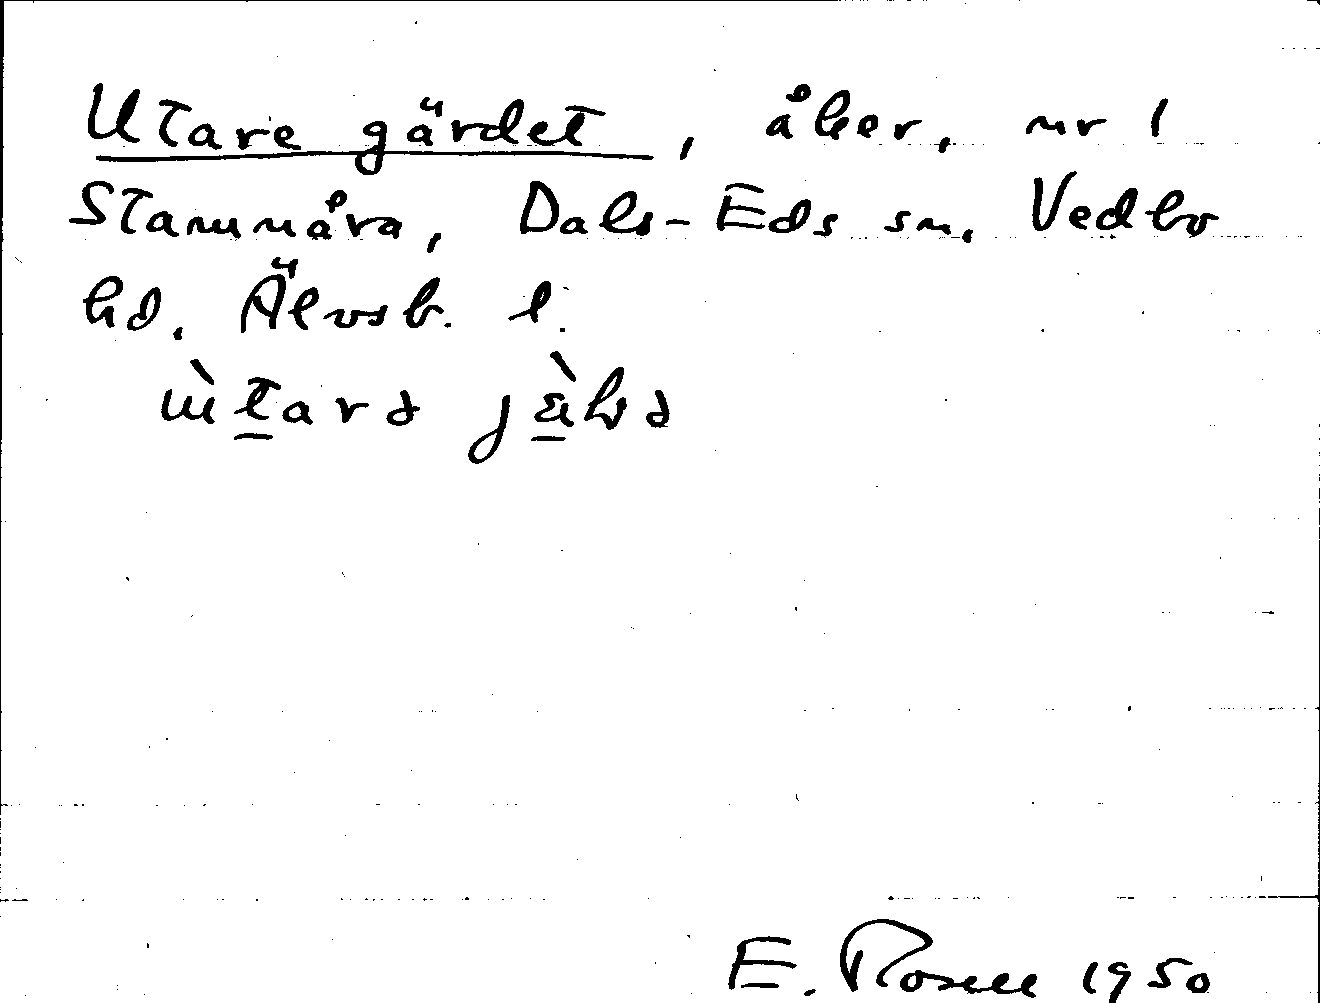 Utare gärdet, åker, nr 1
Stammåra, Dals-Eds sn. Vedbo
hd. Älvsb. l.
ùtarə
E. Rosell 1950